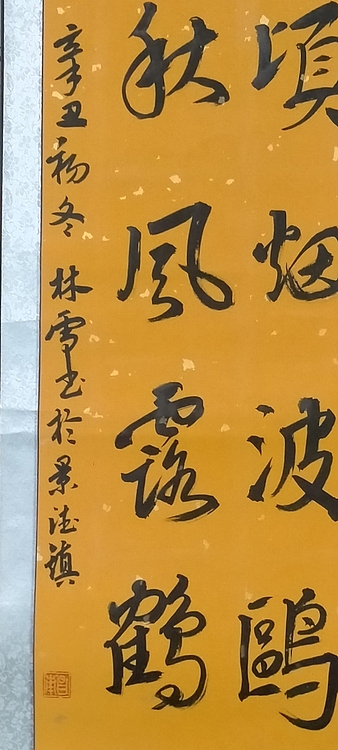 頃烟波鷗
秋風露鶴
辛丑初冬 林雪书於景德鎮